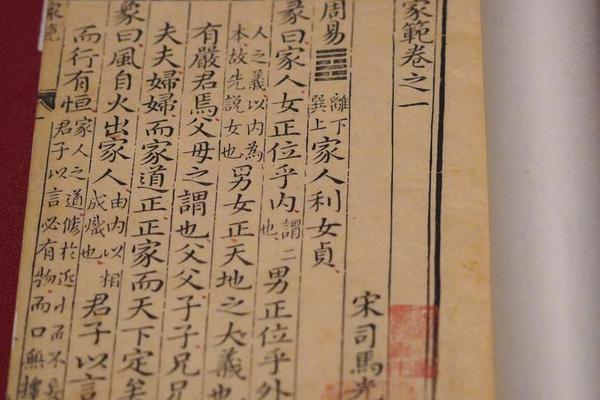 家範卷之一
宋司馬光
周易䷤離下巽上家人利女貞
彖曰家人女正位乎内謂二也男正位乎外
人之義以内為本故先説女也男女正天地之大義也
有嚴君焉父母之謂也父父子子兄兄
夫夫婦婦而家道正正家而天下定矣
象曰風自火出家人由内以相成熾也君子以言
而行有恒家人之道修於近小而不妄君子以言必有物而口無擇
家範